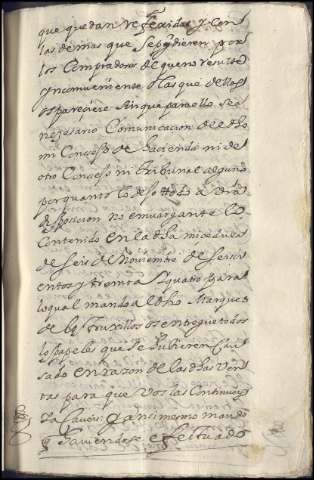 que quedan referidas y con
las demas que se pidieren por
los Compradores de que no resulte
ynconueniente o las que de ellos
os pareciere sin que para ello sea
neçesario Comunicacion de el dho
mi Consejo de hacienda ni de
otro Consejo ni tribunal alguno
por quanto lo dejo todo a vra
disposicion no embargante lo
Contenido en la dha mi cedula
de seis de Nouiembre de seisci
entos y treinta y quatro para
lo qual mando a el dho Marques
de los Trujillos os entregue todos
los papeles que se hubieren Cau
sado en razon de las dhas Ven
tas para que vos las Continueis
y a caueis y an mismo mando
q hauiendose efectuado